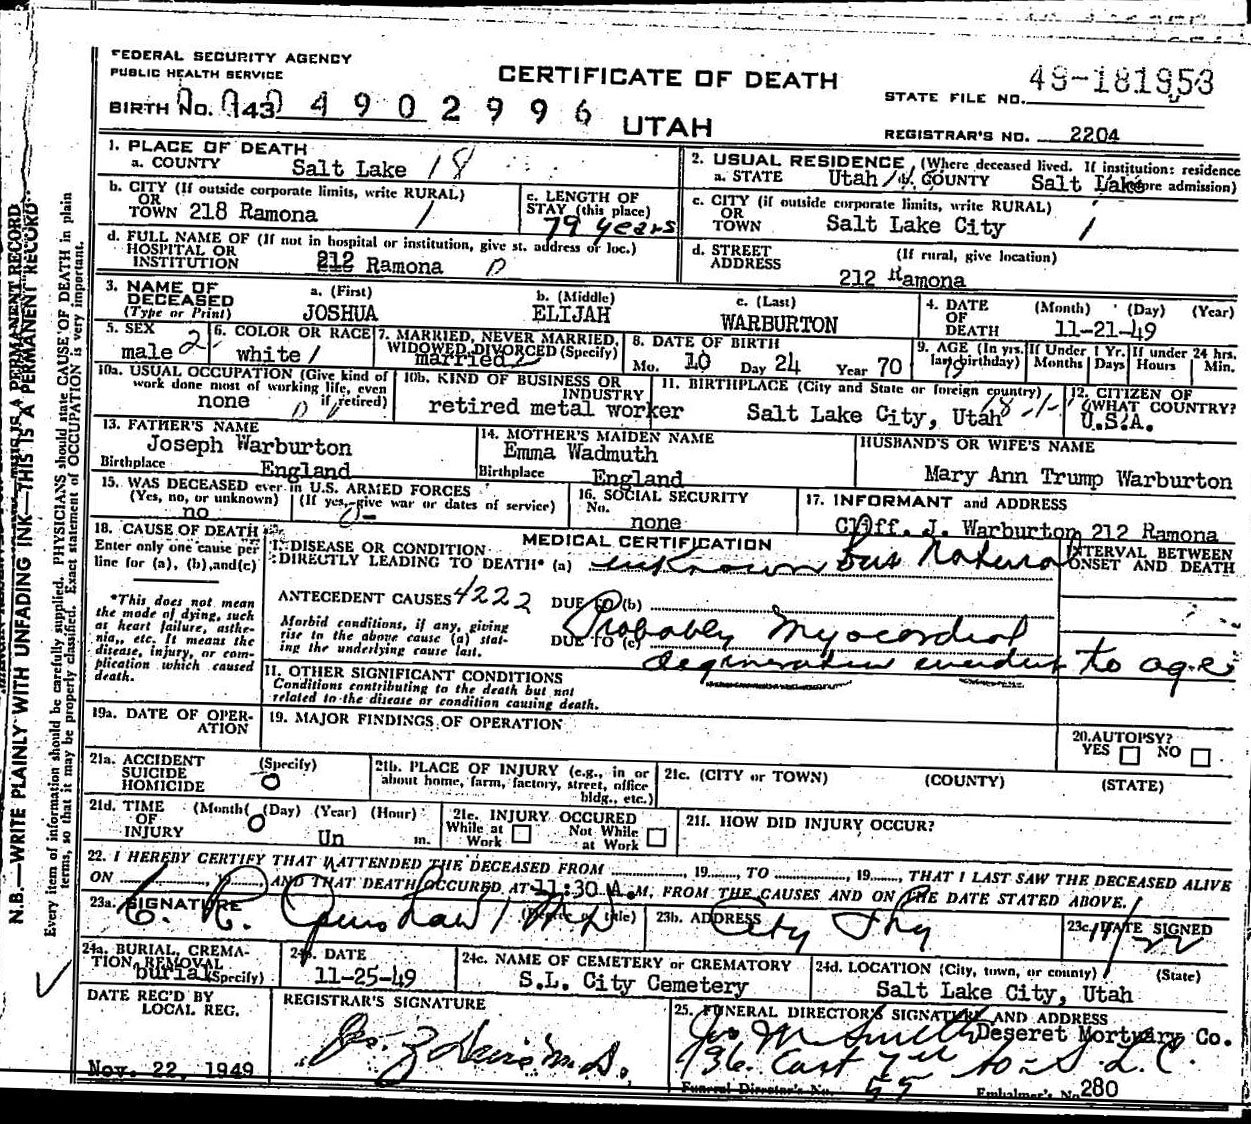 FEDERAL SECURITY AGENCY
PUBLIC HEALTH SERVICE
CERTIFICATE OF DEATH
STATE FILE NO. 49-181953
BIRTH No. 143 4902996
UTAH
REGISTRAR'S NO. 2204
1. PLACE OF DEATH
a. COUNTY Salt Lake 18
2. USUAL RESIDENCE (Where deceased lived. If institution: residence before admission)
a. STATE Utah b. COUNTY Salt Lake
b. CITY (If outside corporate limits, write RURAL)
OR
TOWN 218 Ramona 1
c. LENGTH OF
STAY (this place)
79 years
c. CITY (if outside corporate limits, write RURAL)
OR
TOWN Salt Lake City 1
d. FULL NAME OF (If not in hospital or institution, give st. address or loc.)
HOSPITAL OR
INSTITUTION 212 Ramona
d. STREET
ADDRESS
(If rural, give location)
212 Ramona
3. NAME OF
DECEASED
(Type or Print)
a. (First)
JOSHUA
b. (Middle)
ELIJAH
c. (Last)
WARBURTON
4. DATE
OF
DEATH
(Month) (Day) (Year)
11-21-49
5. SEX
male 2
6. COLOR OR RACE
white 1
7. MARRIED, NEVER MARRIED,
WIDOWED, DIVORCED (Specify)
married 2
8. DATE OF BIRTH
Mo. 10 Day 24 Year 70
9. AGE (In yrs.
last birthday)
79
If Under 1 Yr.
Months Days
If under 24 hrs.
Hours Min.
10a. USUAL OCCUPATION (Give kind of
work done most of working life, even
if retired)
none
10b. KIND OF BUSINESS OR
INDUSTRY
retired metal worker
11. BIRTHPLACE (City and State or foreign country)
Salt Lake City, Utah
12. CITIZEN OF
WHAT COUNTRY?
U.S.A.
13. FATHER'S NAME
Joseph Warburton
Birthplace England
14. MOTHER'S MAIDEN NAME
Emma Wadmuth
Birthplace England
HUSBAND'S OR WIFE'S NAME
Mary Ann Trump Warburton
15. WAS DECEASED ever in U.S. ARMED FORCES
(Yes, no, or unknown) (If yes, give war or dates of service)
no
16. SOCIAL SECURITY
No.
none
17. INFORMANT and ADDRESS
Cliff. J. Warburton 212 Ramona
18. CAUSE OF DEATH
Enter only one cause per
line for (a), (b), and (c)
*This does not mean
the mode of dying, such
as heart failure, asthe-
nia, etc. It means the
disease, injury, or com-
plication which caused
death.
MEDICAL CERTIFICATION
I. DISEASE OR CONDITION
DIRECTLY LEADING TO DEATH* (a) unknown but Natural
INTERVAL BETWEEN
ONSET AND DEATH
ANTECEDENT CAUSES 4222
DUE TO (b)
Morbid conditions, if any, giving
rise to the above cause (a) stat-
ing the underlying cause last.
DUE TO (c)
Probably Myocardial
degeneration to age
II. OTHER SIGNIFICANT CONDITIONS
Conditions contributing to the death but not
related to the disease or condition causing death.
19a. DATE OF OPER-
ATION
19. MAJOR FINDINGS OF OPERATION
20. AUTOPSY?
YES NO
21a. ACCIDENT
SUICIDE
HOMICIDE
(Specify)
0
21b. PLACE OF INJURY (e.g., in or
about home, farm, factory, street, office
bldg., etc.)
21c. (CITY or TOWN) (COUNTY) (STATE)
21d. TIME
OF
INJURY
(Month) (Day) (Year) (Hour)
0 Un m.
21e. INJURY OCCURED
While at
Work
Not While
at Work
21f. HOW DID INJURY OCCUR?
22. I HEREBY CERTIFY THAT I ATTENDED THE DECEASED FROM , 19 , TO , 19 , THAT I LAST SAW THE DECEASED ALIVE
ON , 19 AND THAT DEATH OCCURED AT 11:30 A.M. FROM THE CAUSES AND ON THE DATE STATED ABOVE.
23a. SIGNATURE (Degree or title)
23b. ADDRESS
City
23c. DATE SIGNED
11/22
24a. BURIAL, CREMA-
TION, REMOVAL
burial (Specify)
24b. DATE
11-25-49
24c. NAME OF CEMETERY or CREMATORY
S.L. City Cemetery
24d. LOCATION (City, town, or county) (State)
Salt Lake City, Utah
DATE REC'D BY
LOCAL REG.
Nov. 22, 1949
REGISTRAR'S SIGNATURE
25. FUNERAL DIRECTOR'S SIGNATURE AND ADDRESS
Jos M Smith Deseret Mortuary Co.
S.L.C.
Funeral Director's No. 55
Embalmer's No. 280
N.B.—WRITE PLAINLY WITH UNFADING INK—THIS IS A PERMANENT RECORD
Every item of information should be carefully supplied. PHYSICIANS should state CAUSE OF DEATH in plain
terms, so that it may be properly classified. Exact statement of OCCUPATION is very important.